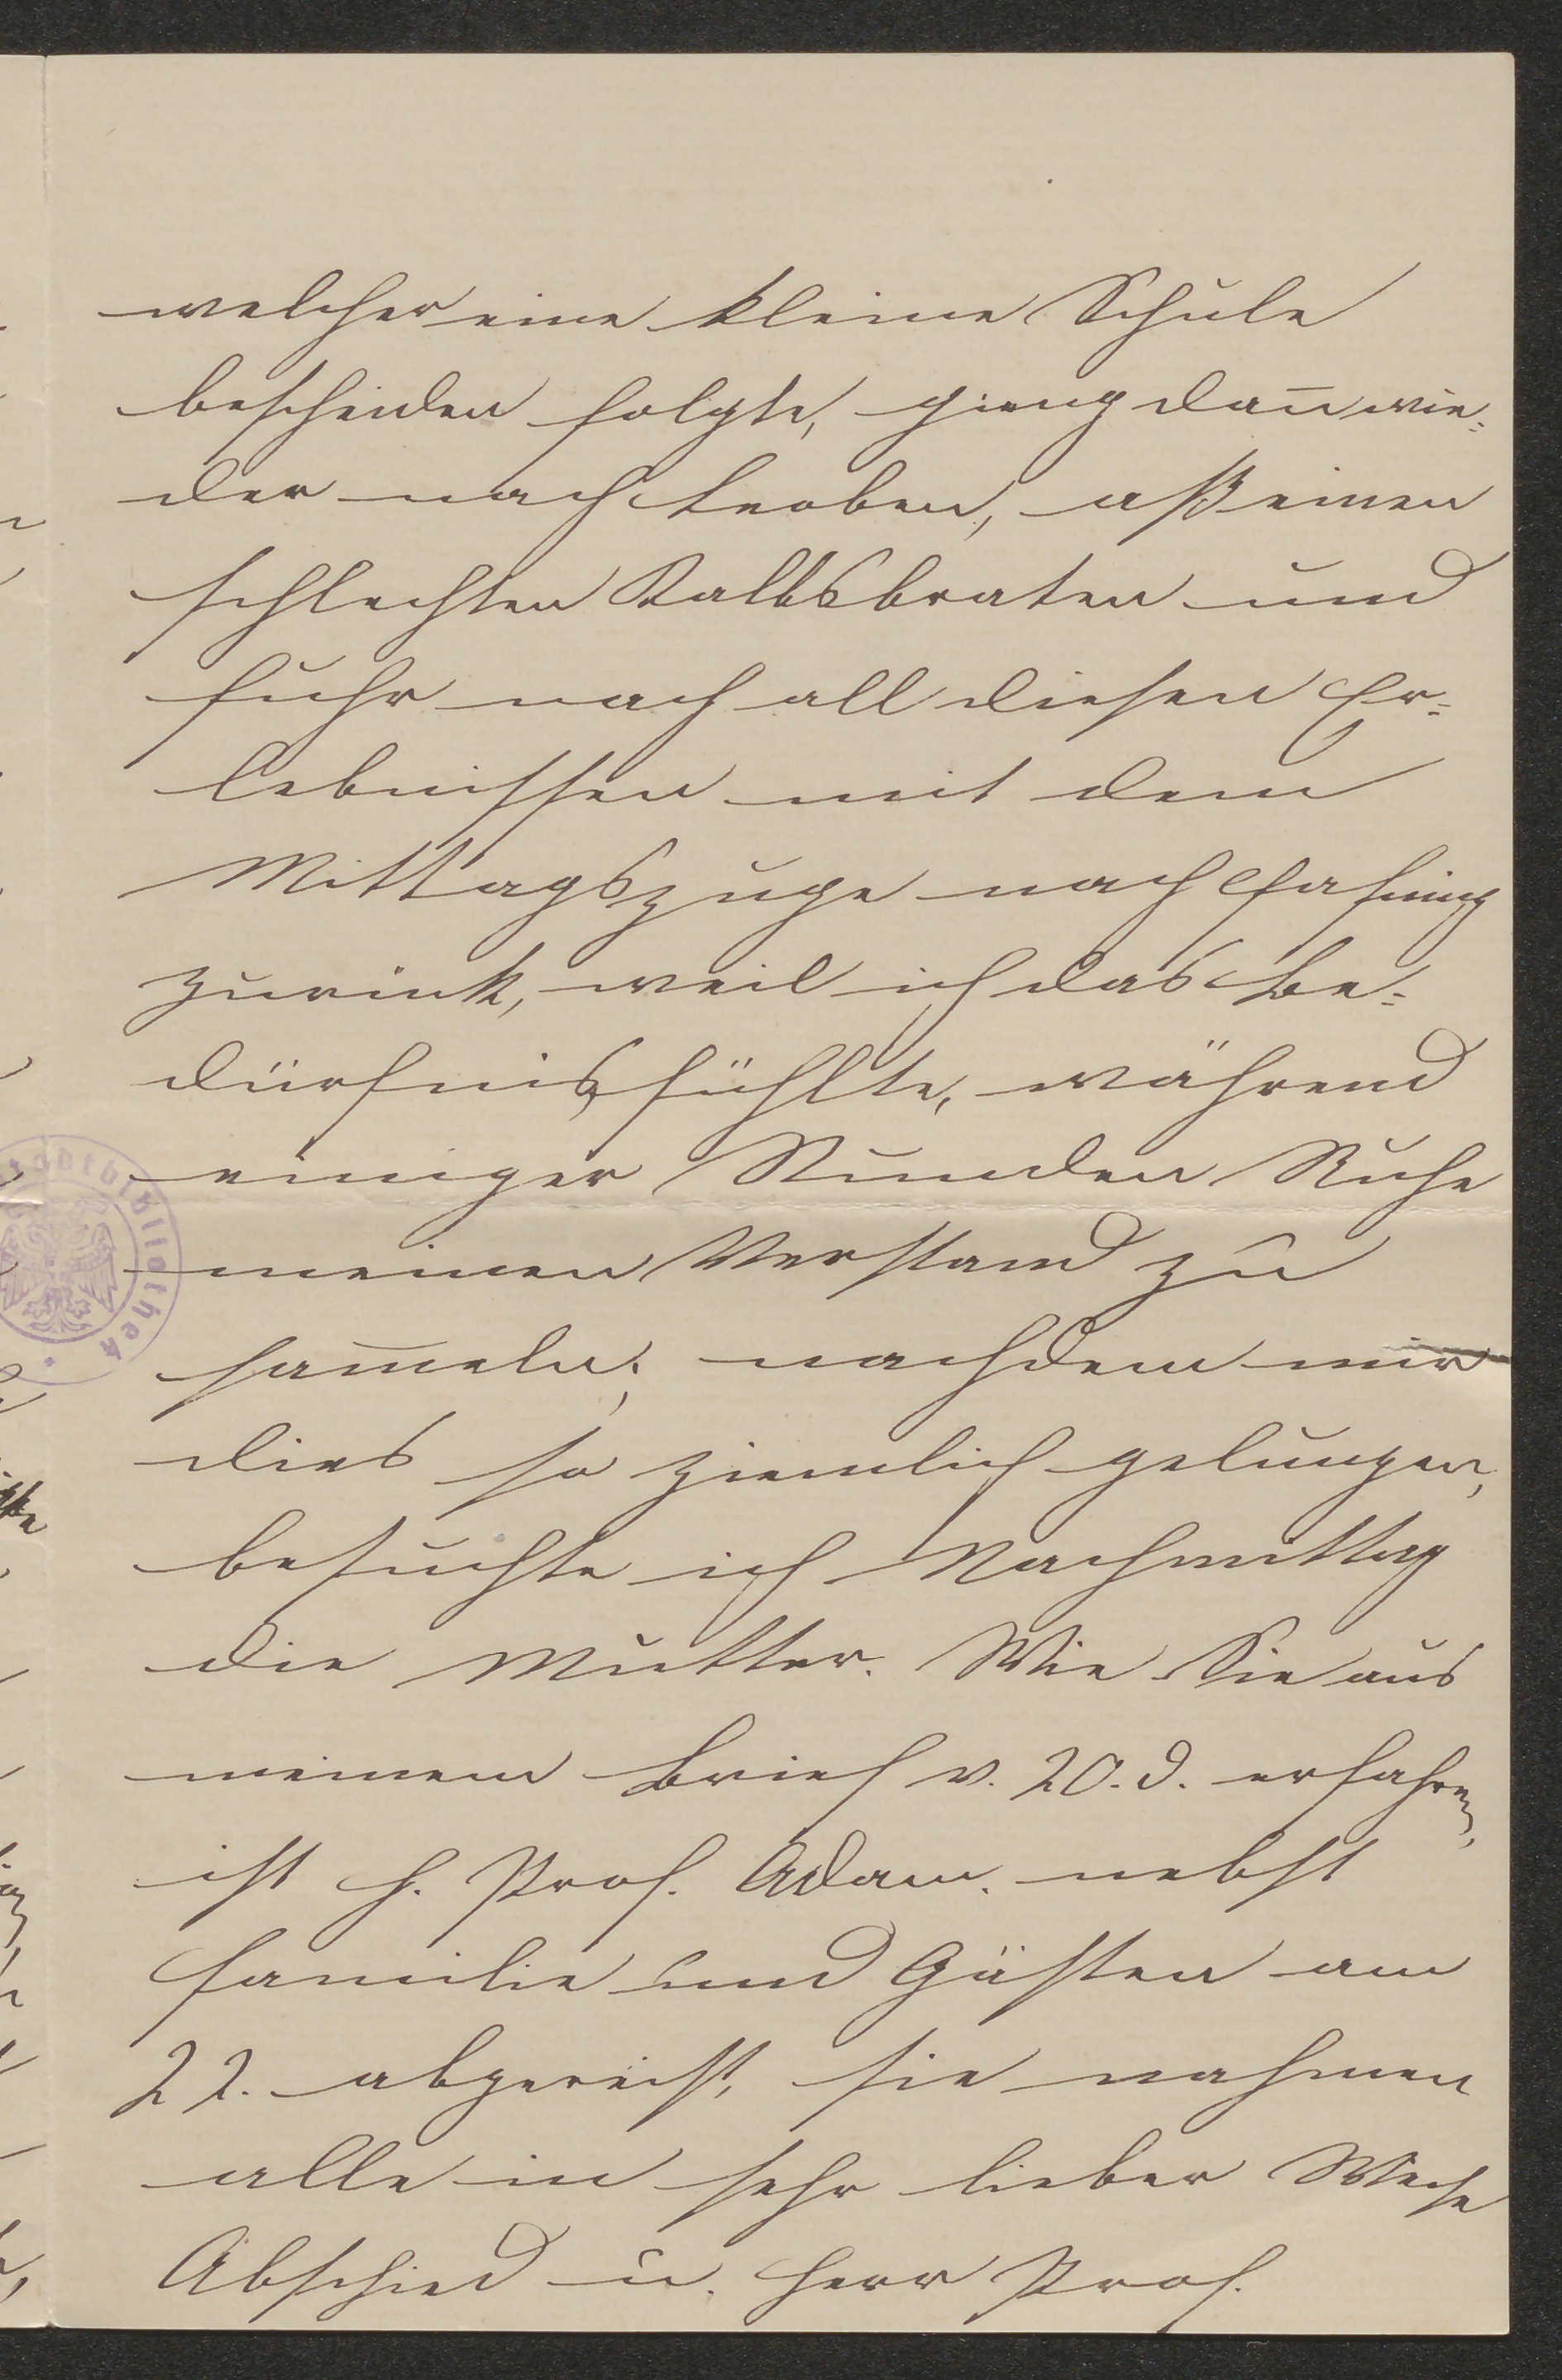 welcher eine kleine Schule
bescheiden folgte, gieng dan̄ wie=
der nach Leoben, aß einen
schlechten Kalbsbraten und
fuhr nach all diesen Er=
lebnissen mit dem
Mittagszuge nach
zurück, weil ich das Be=
dürfnis fühlte, während
einiger Stunden Ruhe
meinen Verstand zu
sam̄eln; nachdem mir
dies so ziemlich gelungen,
besuchte ich Nachmittag
die Mutter. Wie Sie aus
meinem Brief v. 20. d. erfahren,
ist H. Prof. Adam. nebst
Familie und Gästen am
22. abgereist, sie nahmen
alle in sehr lieber Weise
Abschied u. Herr Prof.
Stadtbibliothek